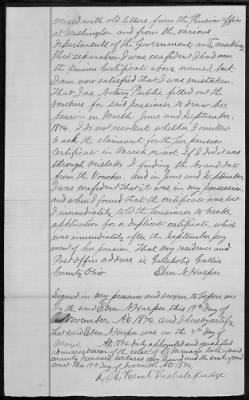 mixed with old letters from the Pension office
at Washington and from the various
Departments of the Government and making
that separation I was confident I had seen
the pension certificate above named, but
I am now satisfied that I was mistaken.
That I as Notary Public filled out the
vouchers for said pensioner to draw her
pension in March June and September
1874. I do not recollect whether I omitted
to ask the claimant for the pension
certificate in March, or not. If I did it was
through mistake I finding the No and date
from the Voucher. And in June and September
I was confident that it was in my possession
and when I found that the certificate was lost
I immediately told the pensioner to make
application for a duplicate certificate, which
was immediately after the September pay
ment of her pension. That my residence and
Post office address is Gallipolis Gallia
County Ohio Eben A Harper
Signed in my presence and sworn to before me
by the said Eben A Harper this 19th day of
November AD 1874 and I hereby certify
that said Eben A Harper was on the day of
March AD 1874 duly appointed and qualified
seal of said
court this 19th day of November AD 1874
Probate Judge